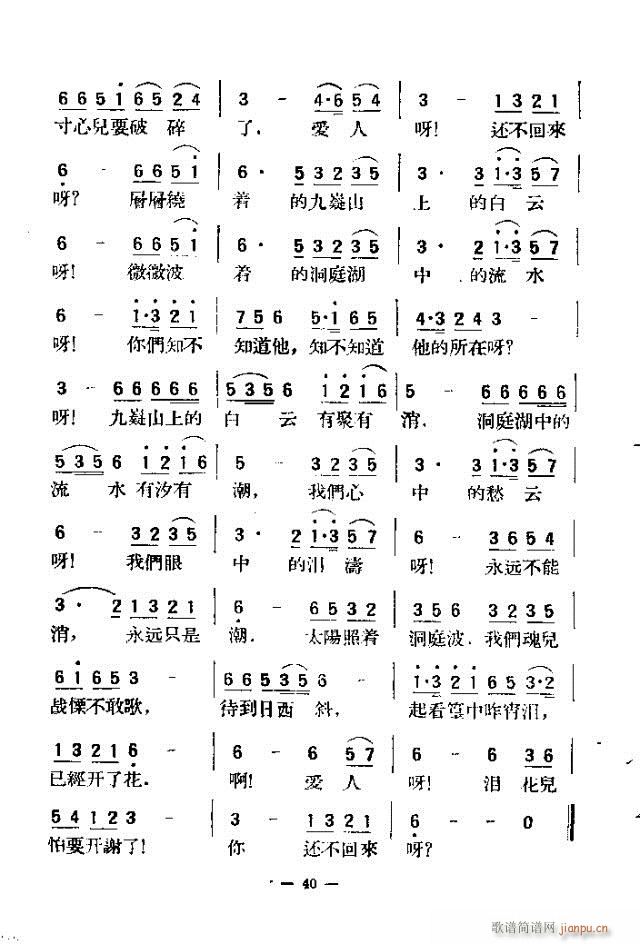 6 6 5 1 6 5 2 4 | 3 - 4·6 5 4 | 3 - 1 3 2 1
寸心兒要破 碎 了, 愛 人 呀! 还不回來
6 - 6 6 5 1 | 6· 5 3 2 3 5 | 3· 3 1·3 5 7
呀? 層層繞 着 的九嶷山 上 的白云
6 - 6 6 5 1 | 6· 5 3 2 3 5 | 3· 2 1·3 5 7
呀! 微微波 着 的洞庭湖 中 的流水
6 - 1·3 2 1 | 7 5 6 5·1 6 5 | 4·3 2 4 3 -
呀! 你們知不 知道他, 知不知道 他的所在呀?
3 - 6 6 6 6 6 6 | 5 3 5 6 1 2 1 6 | 5 - 6 6 6 6 6 6
呀! 九嶷山上的 白 云 有聚有 消, 洞庭湖中的
5 3 5 6 1 2 1 6 | 5 - 3 2 3 5 | 3· 3 1·3 5 7
流 水 有汐有 潮, 我們心 中 的愁云
6 - 3 2 3 5 | 3· 2 1·3 5 7 | 6 - 3 6 5 4
呀! 我們眼 中 的泪 濤 呀! 永远不能
3· 2 1 3 2 1 | 6 - 6 5 3 2 | 3 5 6 5 6 5 3
消, 永远只是 潮. 太陽照着 洞庭波, 我們魂兒
6 1 6 5 3 - | 6 6 5 3 5 6 - | 1·3 2 1 6 5 3·2
战慄不敢歌, 待到日西 斜, 起看篁中昨宵泪,
1 3 2 1 6 - | 6 - 6 5 7 | 6 - 6 3 6
已經开了花. 啊! 愛 人 呀! 泪 花兒
5 4 1 2 3 - | 3 - 1 3 2 1 | 6 - - 0
怕要开謝了! 你 还不回來 呀?
— 40 —
歌谱简谱网 jianpu.cn